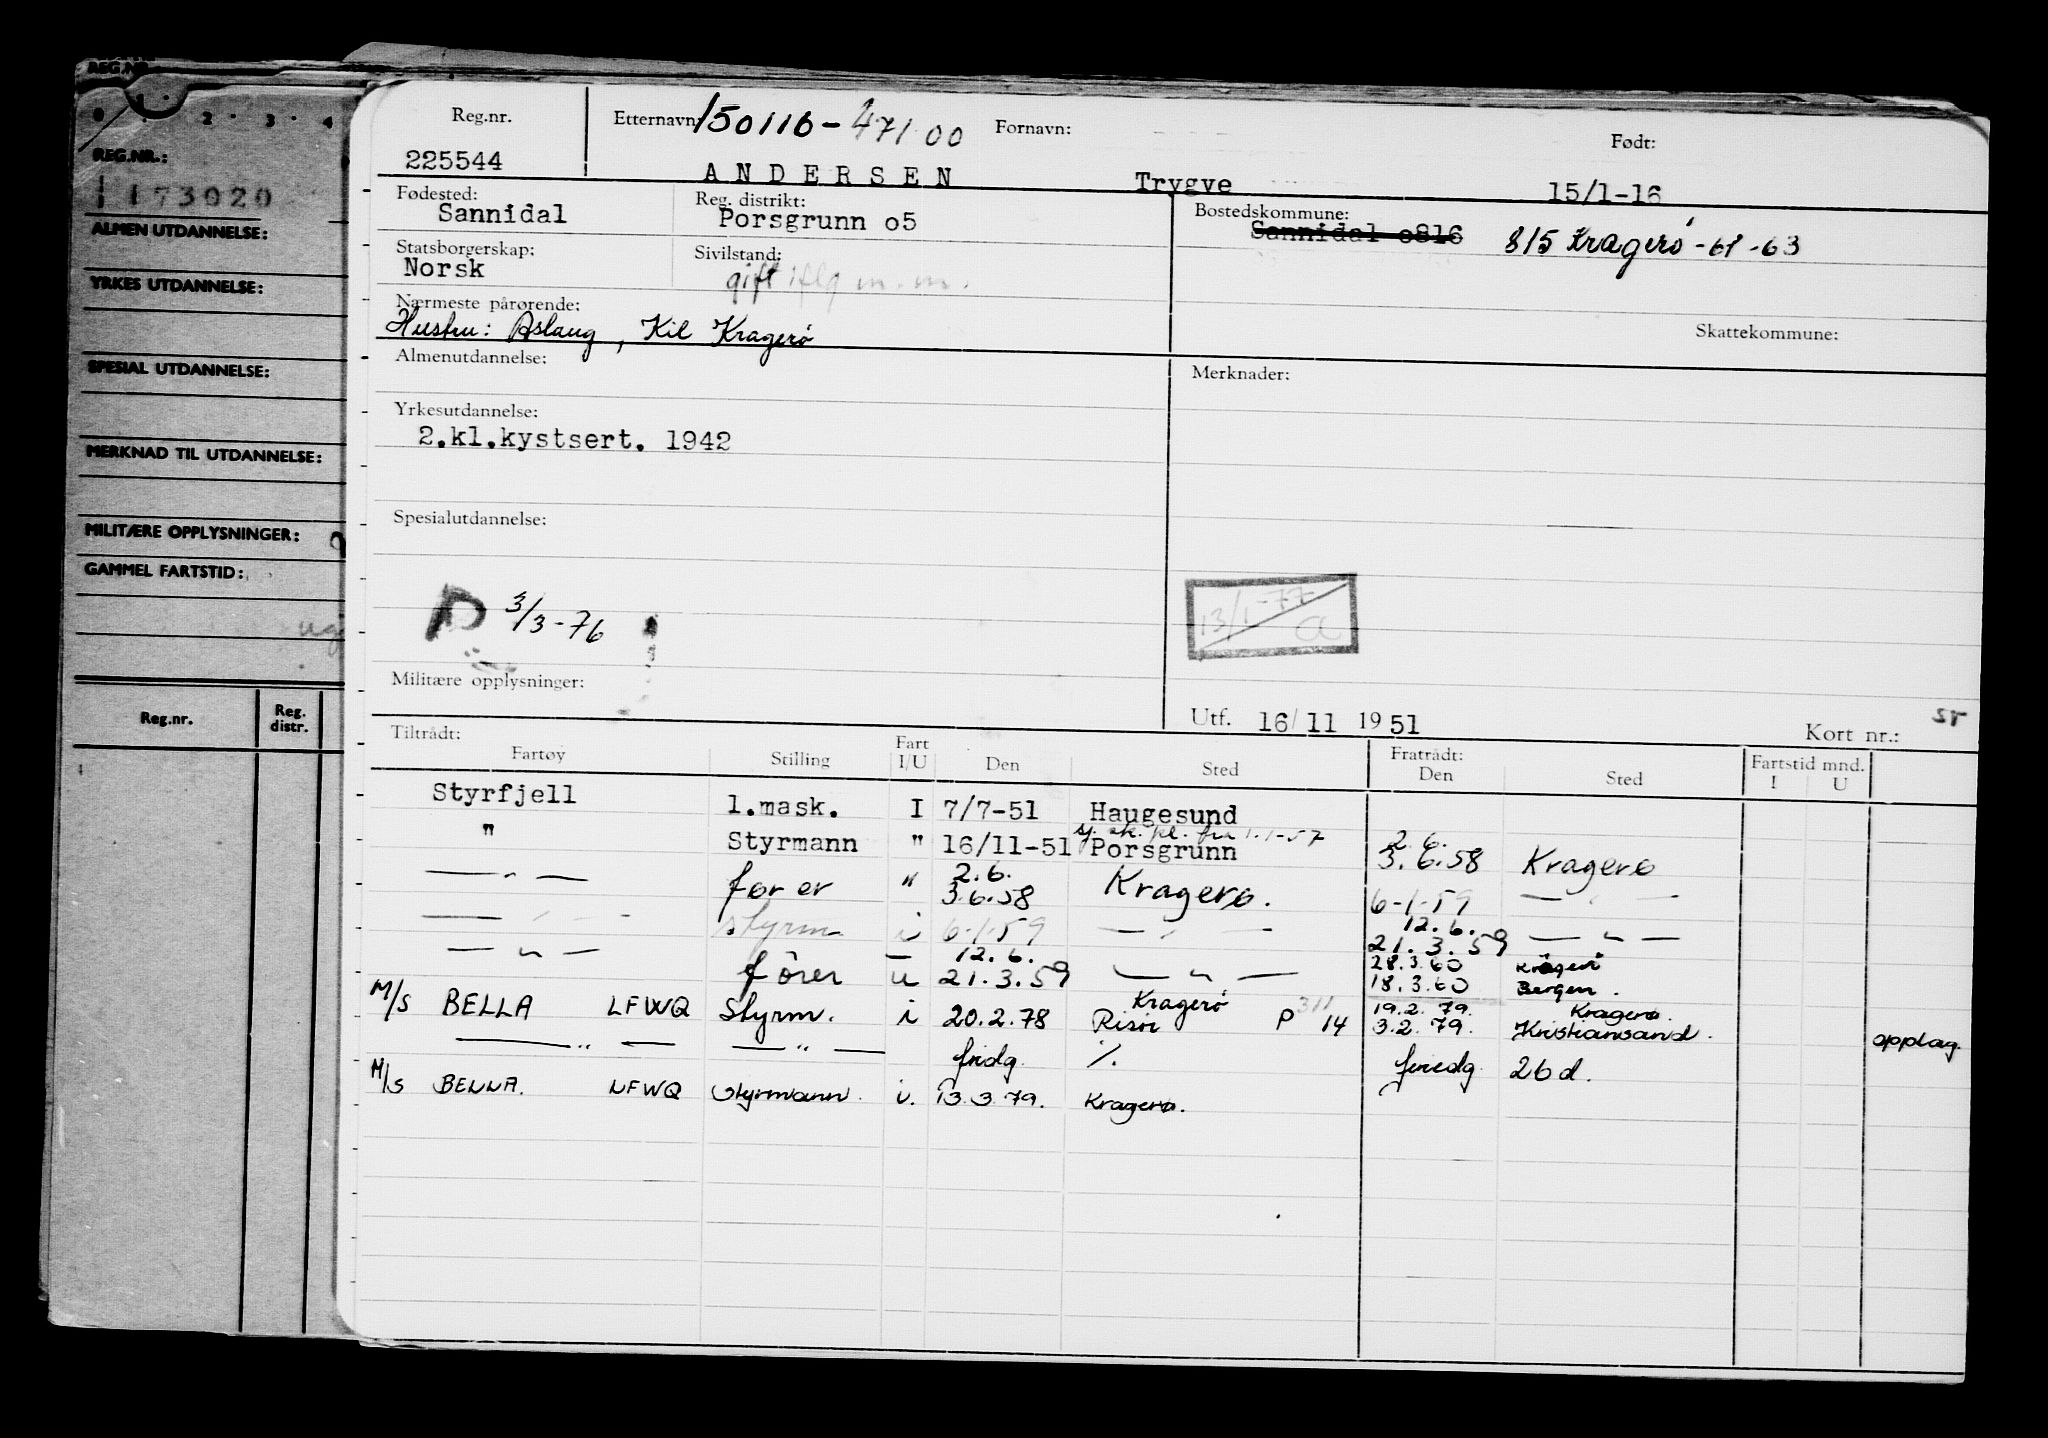 REG.NR.
0 1 2 3 4
REG.NR.:
173020
ALMEN UTDANNELSE:
YRKES UTDANNELSE:
SPESIAL UTDANNELSE:
MERKNAD TIL UTDANNELSE:
MILITÆRE OPPLYSNINGER:
GAMMEL FARTSTID:
Reg.nr. Reg. distr.
Reg.nr. Etternavn: 150116-47100 Fornavn: Født:
225544 ANDERSEN Trygve 15/1-16
Fødested: Reg. distrikt: Bostedskommune:
Sannidal Porsgrunn o5 Sannidal o816 815 Kragerø-61-63
Statsborgerskap: Sivilstand:
Norsk gift iflg m.m.
Nærmeste pårørende: Skattekommune:
Hustru: Aslaug, Kil Kragerø
Almenutdannelse: Merknader:
Yrkesutdannelse:
2.kl.kystsert. 1942
Spesialutdannelse:
D 3/3-76
13/1-77 a
Militære opplysninger:
Utf. 16/11 1951 Kort nr.:
Tiltrådt: Fratrådt:
Fartøy Stilling Fart I/U Den Sted Den Sted Fartstid mnd. I U
Styrfjell 1.mask. I 7/7-51 Haugesund
sj. sk. pl. fra 1.1-57 2.6.
" Styrmann " 16/11-51 Porsgrunn 3.6.58 Kragerø
2.6.
— " — fører " 3.6.58 Kragerø. 6-1-59 — " —
12.6.
— " — styrm i 6-1-59 — " — 21.3.59 — " —
12.6. 28.3.60 Kragerø
— " — fører u 21.3.59 — " — 18.3.60 Bergen.
Kragerø 311 19.2.79. Kragerø.
M/S BELLA LFWQ Styrm. i 20.2.78 Risør P 14 3.2.79. Kristiansand.
— " — — " — fridg. /. feriedg 26d. oppdag.
M/S BELLA. LFWQ Styrmann. i. 13.3.79. Kragerø.